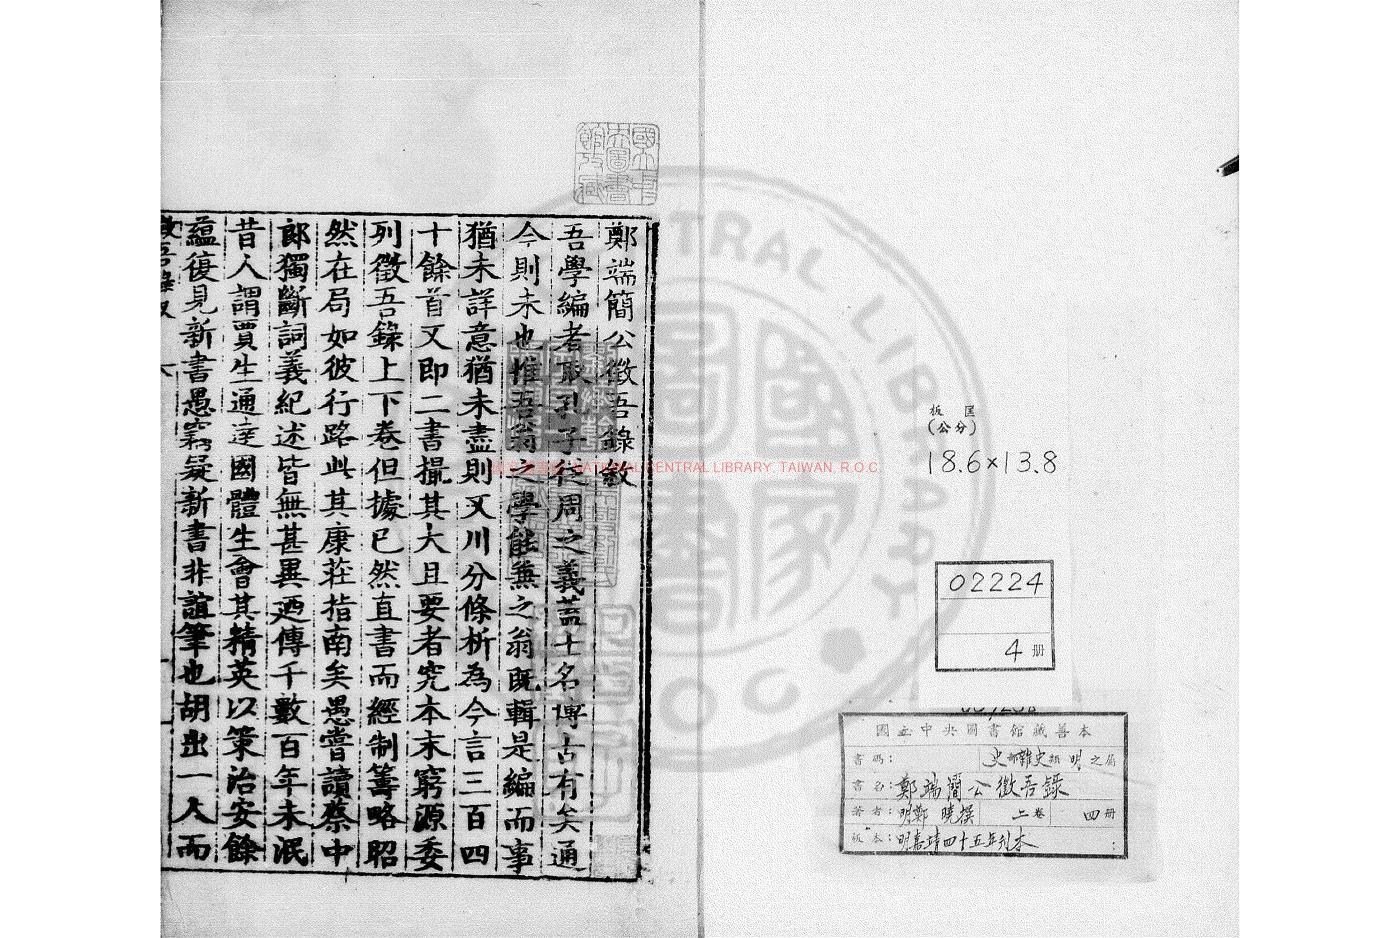 板匡
(公分)
18.6×13.8
02224
4 册
國立中央圖書館藏善本
書碼： 史部雜史類 明之屬
書名：鄭端簡公徵吾錄
著者：明鄭曉撰 二卷 四册
版本：明嘉靖四十五年刊本
鄭端簡公徵吾錄敘
吾學編者取孔子從周之義蓋士名博古有矣通
今則未也惟吾翁之學能兼之翁既輯是編而事
猶未詳意猶未盡則又川分條析為今言三百四
十餘首又即二書撮其大且要者究本末窮源委
列徵吾錄上下卷但據已然直書而經制籌略昭
然在局如彼行路此其康莊指南矣愚嘗讀蔡中
郎獨斷詞義紀述皆無甚異迺傳千數百年未泯
昔人謂賈生通達國體生會其精英以策治安餘
蘊復見新書愚竊疑新書非誼筆也胡出一人而
國立中央圖書館收藏
NATIONAL CENTRAL LIBRARY, TAIWAN, R.O.C